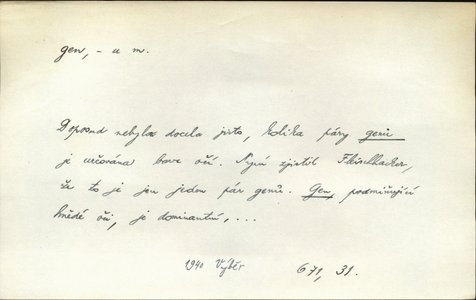 gen, -u m.
Doposud nebylo docela jisto, kolika páry genů
je určována barva očí. Nyní zjistil Fleischhacker,
že to je jen jeden pár genů. Gen, podmiňující
hnědé oči, je dominantní, ...
1940 Výběr 671, 31.